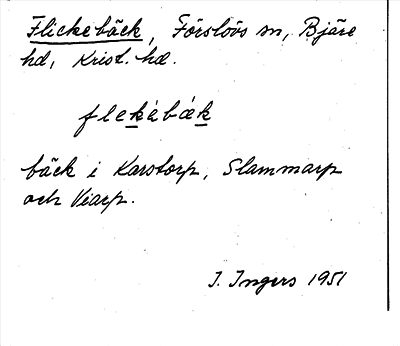 Flickebäck, Förslövs sn, Bjäre
hd, Krist. hd.
flekàbæk
bäck i Karstorp, Slammarp
och Viarp.
I. Ingers 1951